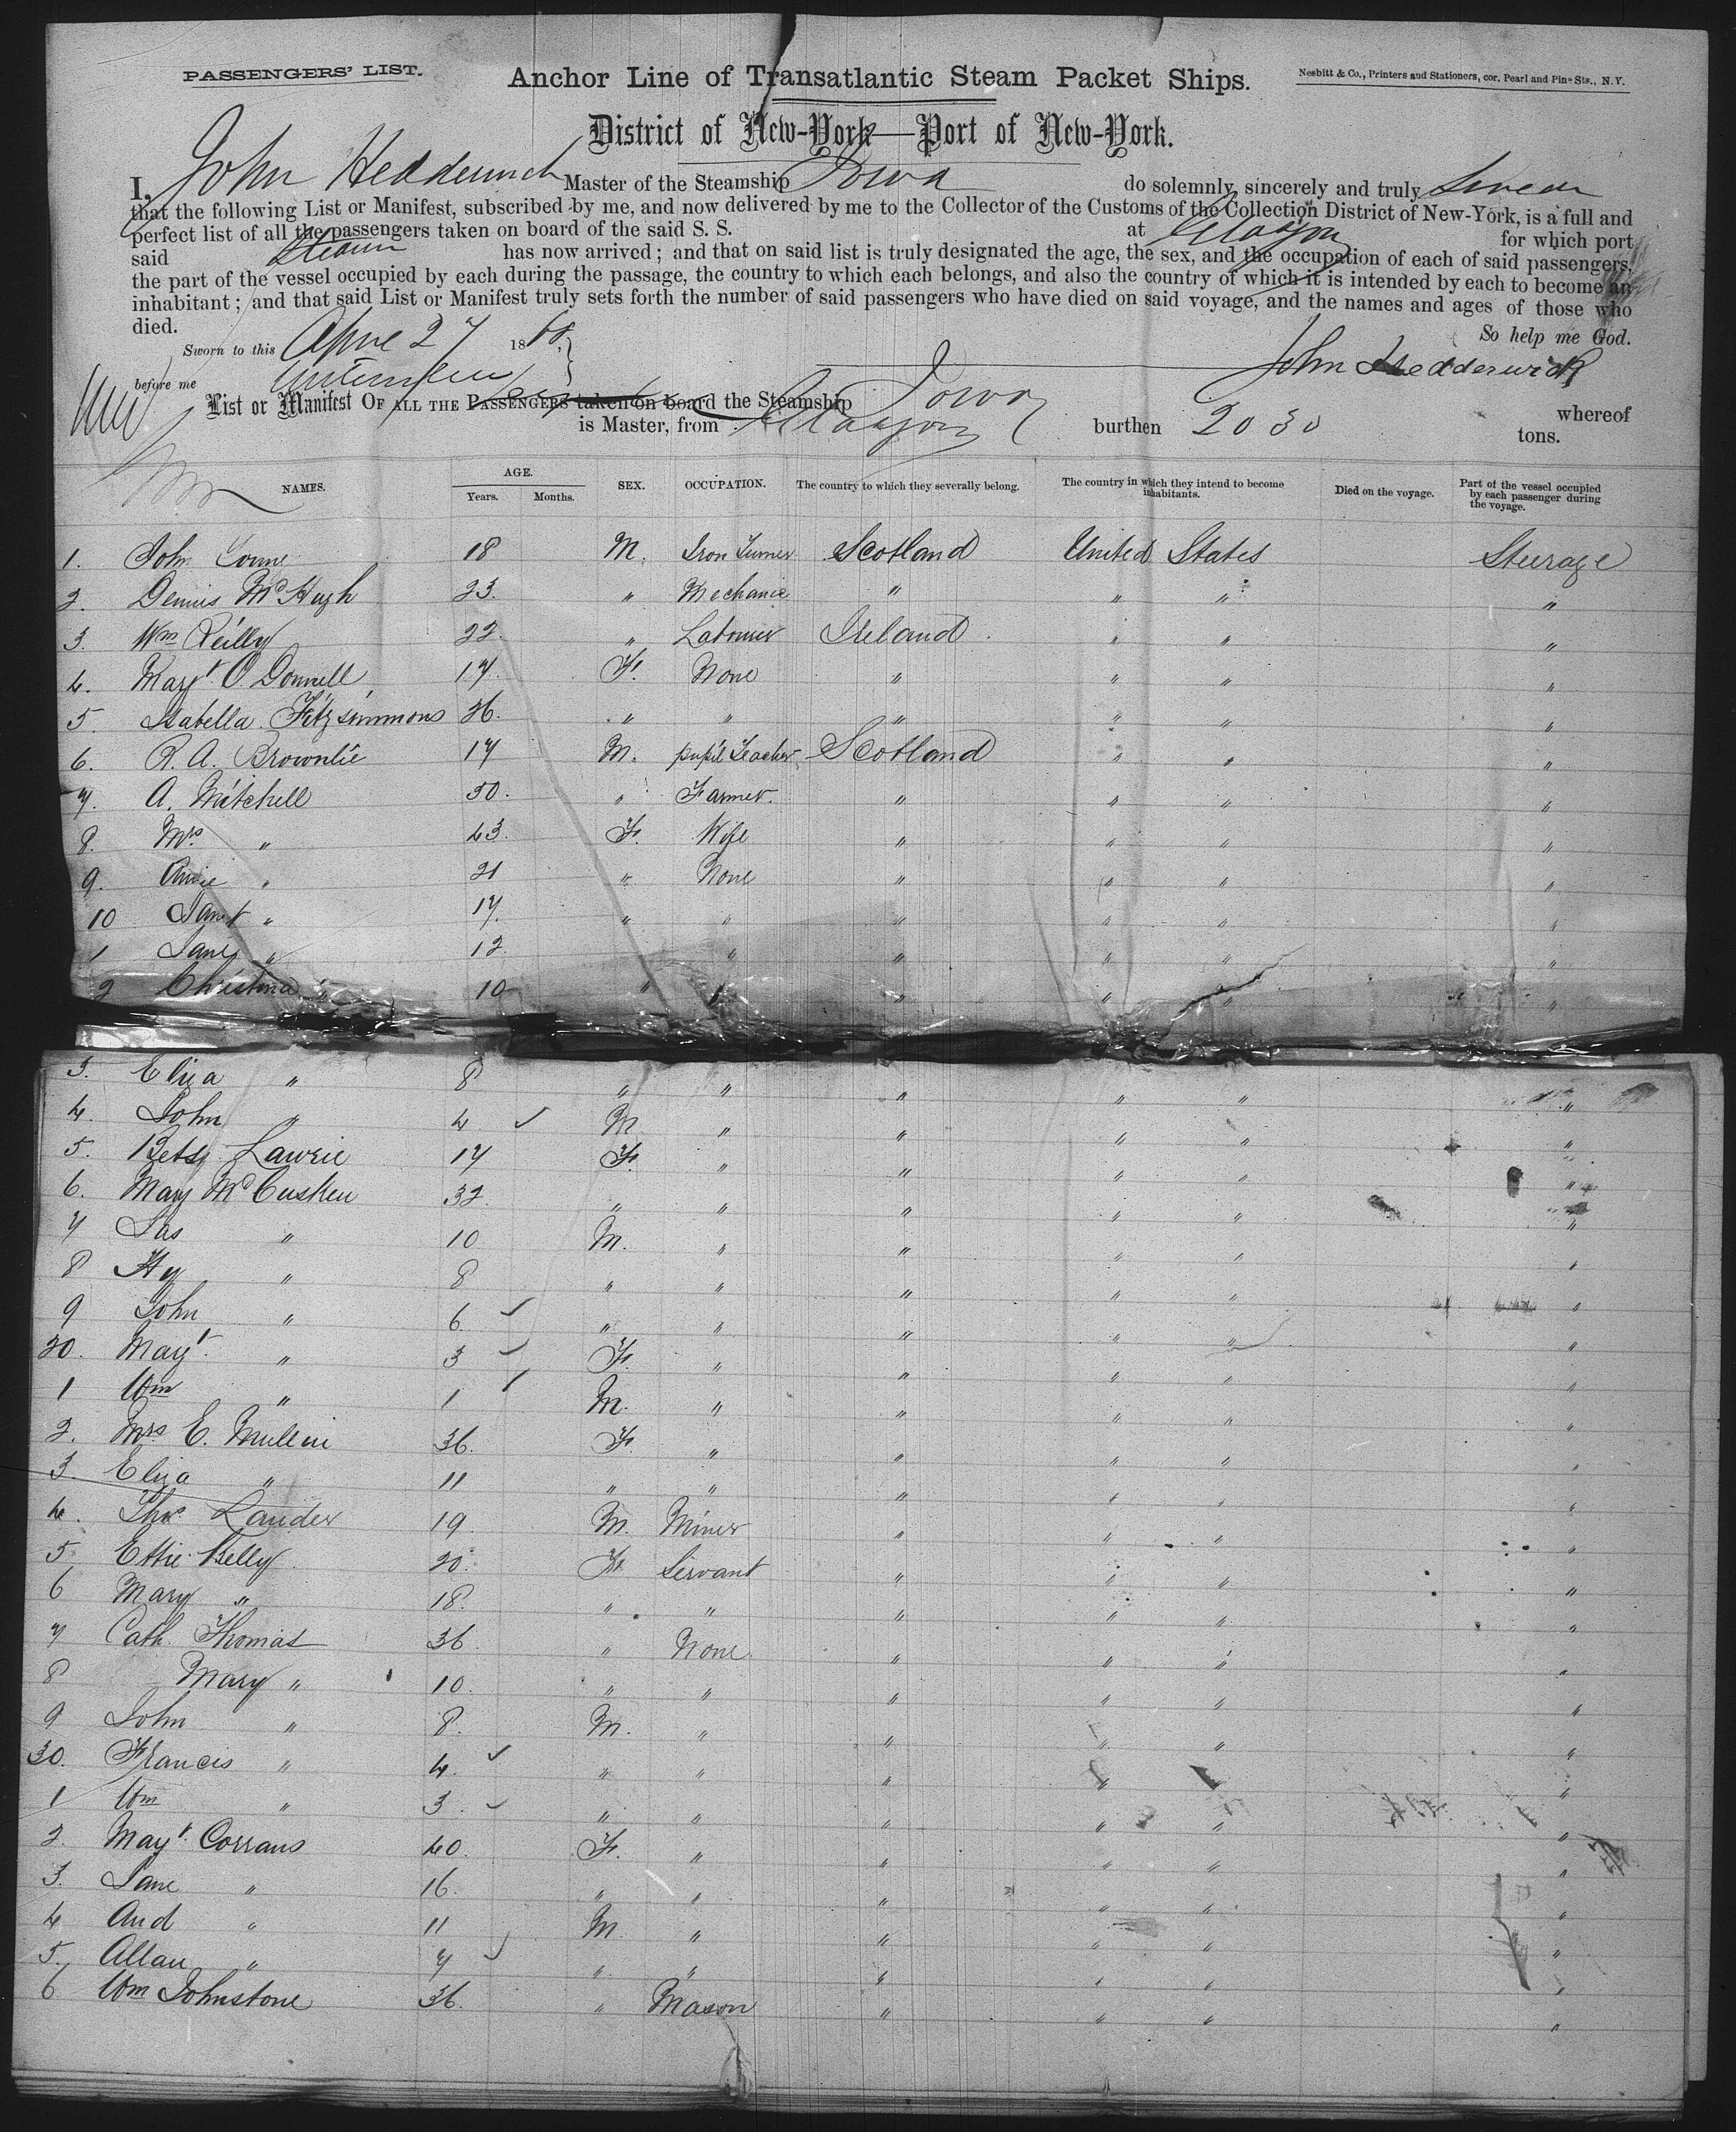 PASSENGERS' LIST.
Anchor Line of Transatlantic Steam Packet Ships.
Nesbitt & Co., Printers and Stationers, cor. Pearl and Pine Sts., N.Y.
District of New-York—Port of New-York.
I, John Hedderwick Master of the Steamship Iowa do solemnly, sincerely and truly swear
that the following List or Manifest, subscribed by me, and now delivered by me to the Collector of the Customs of the Collection District of New-York, is a full and
perfect list of all the passengers taken on board of the said S. S. at Glasgow for which port
said Steam has now arrived; and that on said list is truly designated the age, the sex, and the occupation of each of said passengers,
the part of the vessel occupied by each during the passage, the country to which each belongs, and also the country of which it is intended by each to become an
inhabitant; and that said List or Manifest truly sets forth the number of said passengers who have died on said voyage, and the names and ages of those who
died.
So help me God.
Sworn to this 27 1868
John Hedderwick
before me
List or Manifest OF ALL THE PASSENGERS taken on board the Steamship Iowa whereof
is Master, from Glasgow burthen 2030 tons.
NAMES. AGE. Years. Months. SEX. OCCUPATION. The country to which they severally belong. The country in which they intend to become inhabitants. Died on the voyage. Part of the vessel occupied by each passenger during the voyage.
1. John 18 M. Iron Turner Scotland United States Steerage
2. Dennis McHugh 23. " Mechanic " " " "
3. Wm Reilly 22. " Labourer Ireland " " "
4. Margt. O'Donnell 17. F. None " " " "
5. Isabella Fitzsimmons 26. " " " " " "
6. R. A. Brownlie 17 M. pupil Teacher Scotland " " "
7. A. Mitchell 50. " Farmer. " " " "
8. Mrs " 43. F. Wife " " " "
9. " 21 " None " " " "
10 Janet " 17. " " " " " "
1 Jane " 12 " " " " "
2 Christina " 10 " " " " " "
3. Eliza " 8 " " " " " "
4. John " 4 ✓ M. " " " " "
5. Betsy Lawrie 17 F. " " " " "
6. Mary McCusken 32 " " " " " "
7 Jas " 10 M. " " " " "
8 Hy " 8 " " " " " "
9 John " 6. ✓ " " " " " "
20. Magt. " 3 ✓ F. " " " " "
1 Wm " 1 ✓ M. " " " " "
2. Mrs E. 36. F. " " " " "
3. Eliza " 11 " " " " " "
4. Thos Lauder 19. M. Miner " " " "
5. Effie Kelly 20. F. Servant " " " "
6 Mary " 18. " " " " " "
7 Cath. Thomas 36. " None " " " "
8 Mary " 10. " " " " " "
9 John " 8. M. " " " " "
30. Francis " 4. ✓ " " " " " "
1 Wm " 3. ✓ " " " " " "
2. Magt. Corrans 40. F. " " " " "
3. Jane " 16. " " " " " "
4 And " 11 M. " " " " "
5. Allan " 7 ✓ " " " " " "
6 Wm Johnstone 36. " Mason " " " "